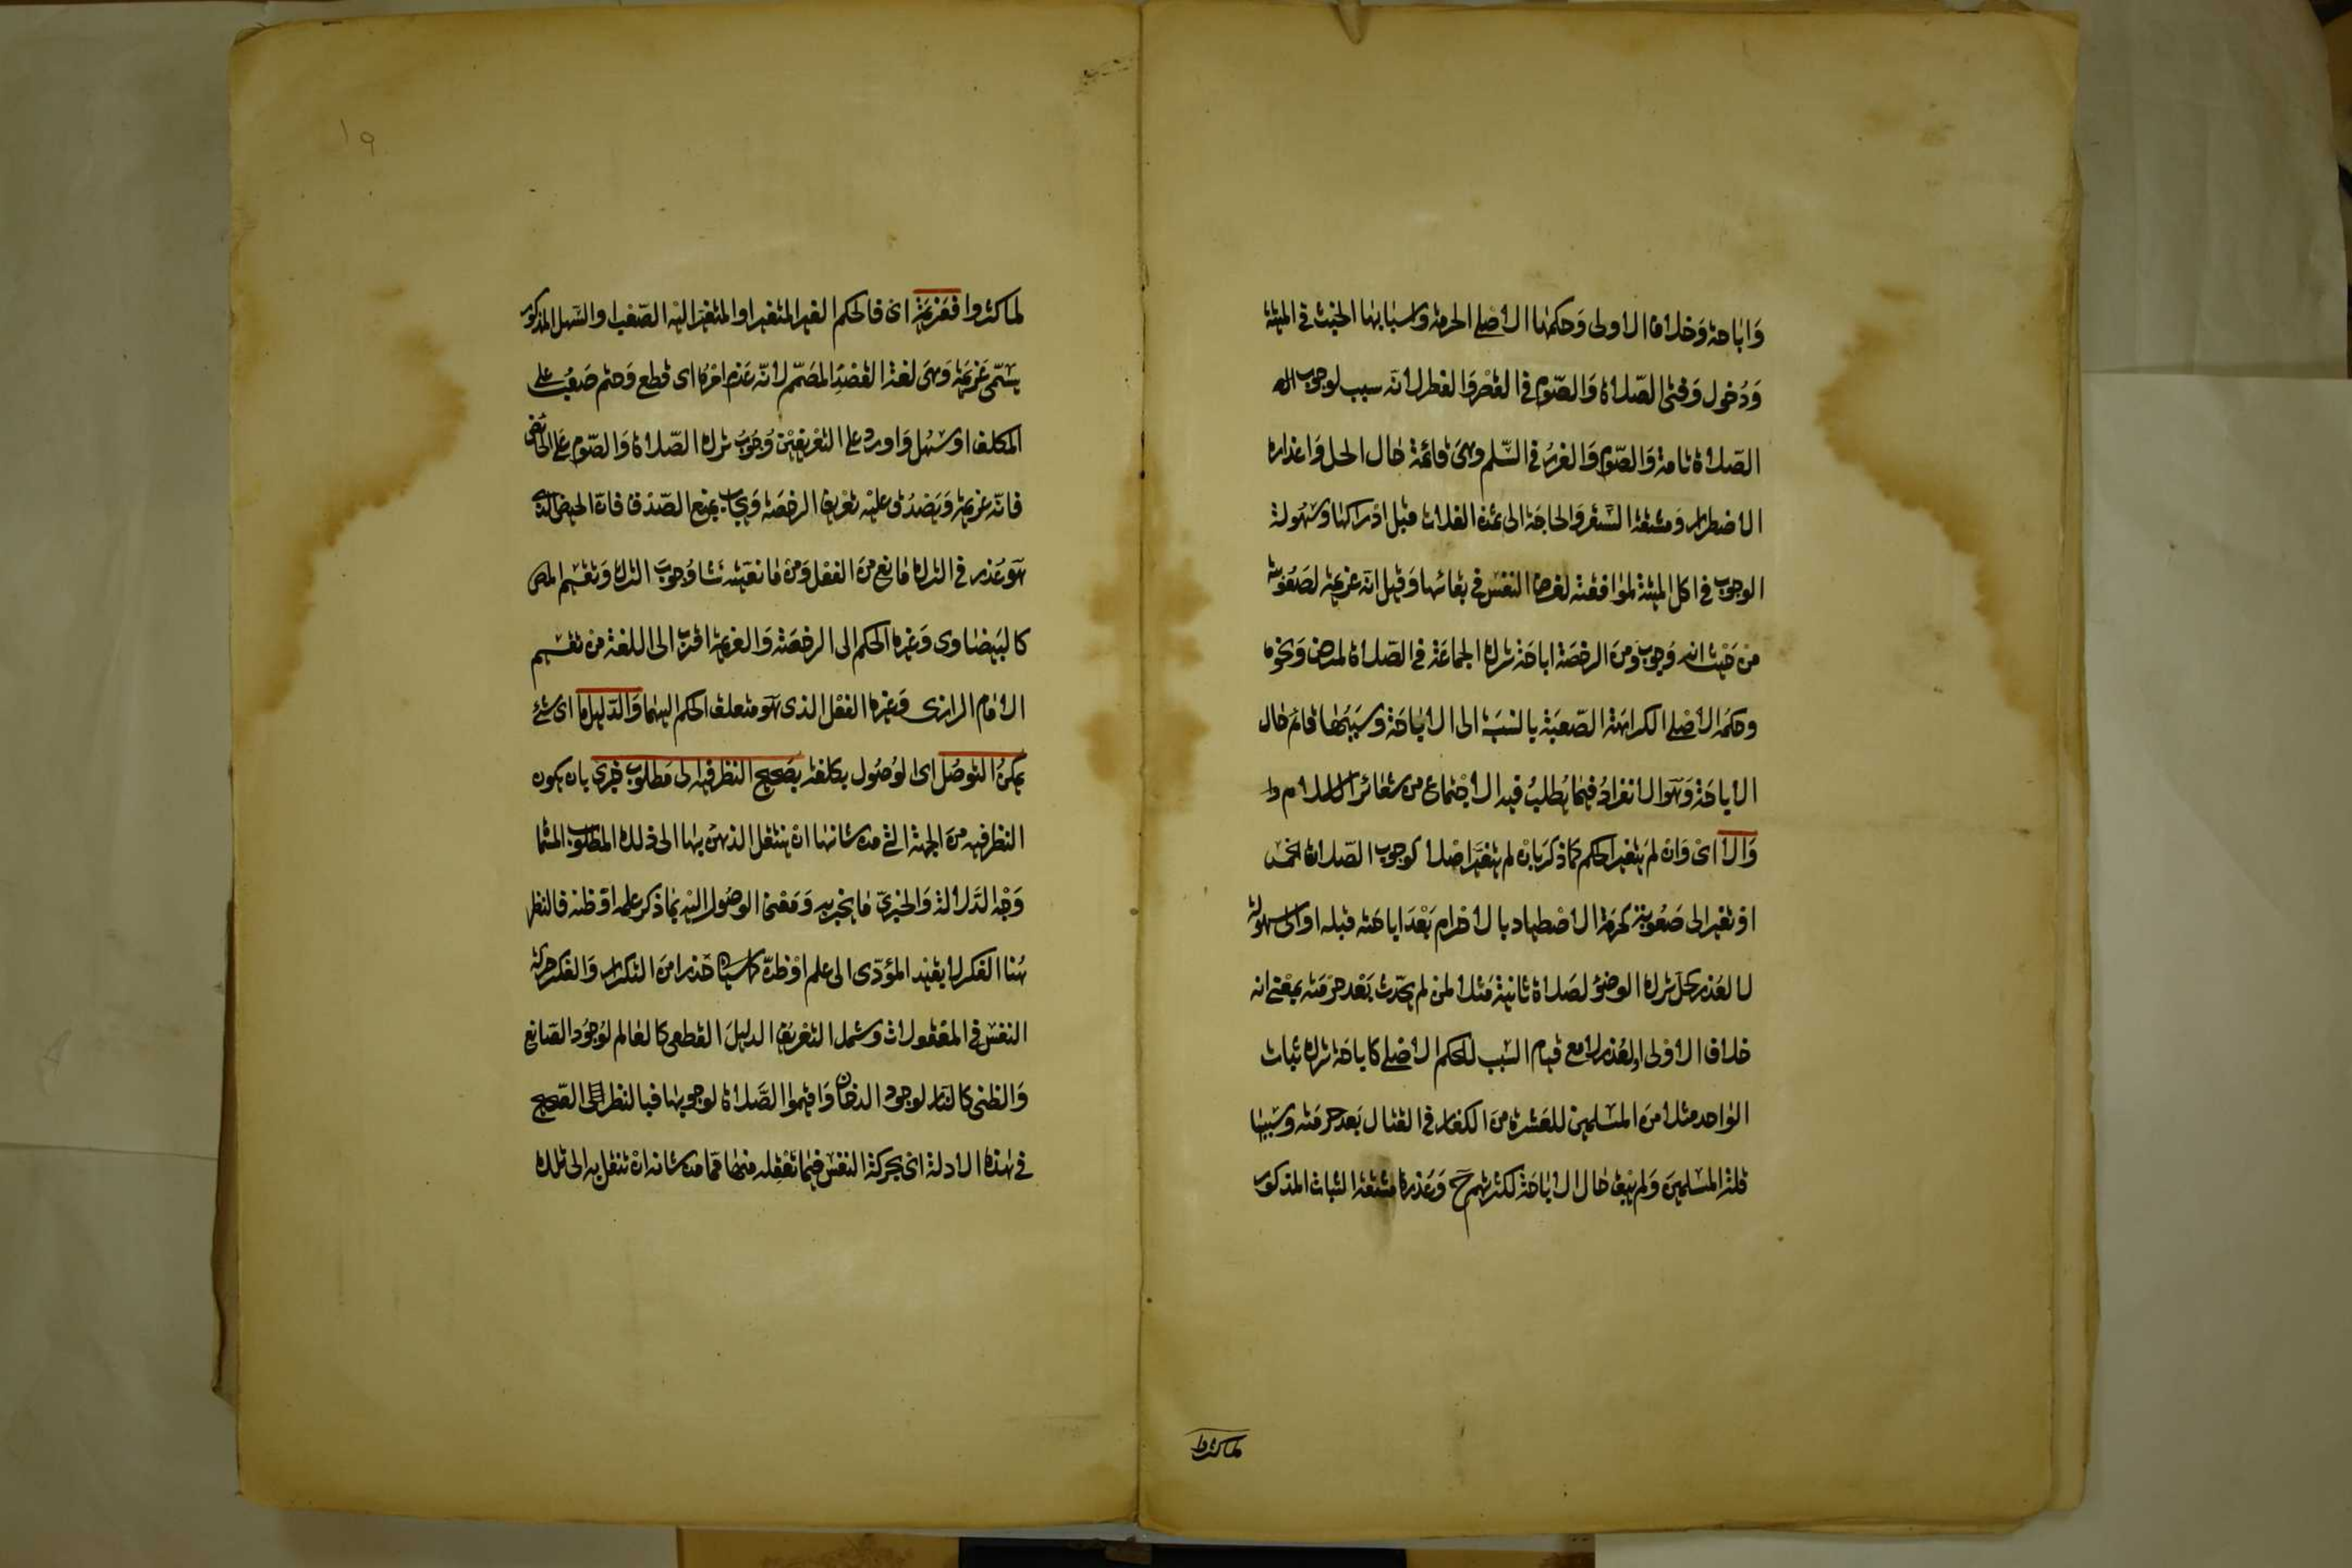 وَاباحة وَخلاف الاولى وَحكمها الاصلي الحرمة واسبابها الخبث في الميتة
وَدُخول وَقتي الصّلاة وَالصّوم في القصْر وَالفطر لانّه سبب لوجوب
الصّلاة تامة وَالصّوم وَالغرر في السّلم وهي قائمة حَال الحل وَاعذاره
الاضطرار ومشقة السّفر وَالحاجة الى ثمن الغلات قبل ادراكها وسهولة
الوجوب في اكل الميتة لموافقته لغرض النفس في بقائها وَقيل انّه عزيمة لصعُوبته
من حَيث انه وَجوب وَمنَ الرخصَة اباحة ترك الجماعَة في الصّلاة لمرض وَنحوه
وحكمه الاصْلي الكراهَة الصّعبَة بالنسبَة الى الاباحَة وسَببُها قائم حَال
الاباحَة وَهوَ الانفرادُ فيمَا يُطلبُ فيه الاجتماع من شعَائر الاسلام
وَالا ايْ وَان لم يتغير الحكم كمَا ذكرَ بانْ لم يتغيّر اصْلا كوجوب الصّلوات الخمس
اوْ تغير الى صَعُوبة كحرمَة الاصْطياد بالاحْرام بَعْدَ اباحته قبله او الى سهولة
لا لعُذر كحلّ ترك الوضوْ لصَلاة ثانية مَثلا لمنْ لم يُحدث بَعْد حرْمَته بمعْنى انه
خلاف الاوْلى او لعُذر لا مع قيام السّبب للحكم الاصْلي كاباحَة ترك ثبات
الوَاحد مثلا منَ المسْلمين للعَشرة منَ الكفار في القتال بَعد حرمَته وسَببها
قلة المسْلمينَ وَلم تبْق حَال الاباحَة لكثرتهم ح وَعذرها مشقة الثبات المذكور
لماكثروا
لما كثروا فعَزيمَة اى فالحكم الغير المتغير او المتغير اليْه الصّعْب او السّهل المذكور
يسَمّى عَزيمَة وَهيَ لغة القصْدُ المصَمّم لانّه عَزم امْره اى قطع وَحتم صَعُبَ على
المكلف او سَهل وَاورد على التعْريفيْن وُجوبُ ترك الصّلاة وَالصّوم عَلى الحائض
فانّه عزيمة وَيَصْدُق عليْه تعْريف الرخصَة وَيجابُ بمنع الصّدْق فانّ الحيض الذى
هوَ عُذر في الترك مَانع منَ الفعْل وَمنْ مانعيّته نشا وُجوبُ الترك وَتقسيم المص
كالبَيضَاوى وَغيره الحكم الى الرخصَة وَالعزيمة اقربُ الى اللغة من تقسيم
الامَام الرازى وَغيره الفعْل الذى هوَ متعلق الحكم اليهمَا وَالدّليل ما اى شئ
يمكنُ التوصّل اى الوُصُول بكلفة بصَحيح النظر فيه الى مَطلوب خبري بان يكون
النظر فيه منَ الجهة التي من شانها انْ ينتقل الذهن بها الى ذلك المطلوب المسَمّاة
وَجْه الدّلالة وَالخبريّ مَا يخبر به وَمعْنى الوصُول اليْه بمَا ذكر علمه اوْ ظنه فالنظر
هُنا الفكر لا بقيْد المؤدّى الى علم اوْ ظنّ كمَا سيَاتي حَذرا منَ التكرار وَالفكر حركة
النفس في المعْقولات وشمل التعْريف الدليلَ القطعى كالعَالم لوُجُود الصّانع
وَالظنى كالنار لوجود الدخان وَاقيموا الصَّلاة لوجوبها فبالنظر الصّحيح
في هَذه الادلة اى بحركة النفس فيمَا تعْقله منهَا ممّا من شانه انْ تنتقل به الى تلك
١٩